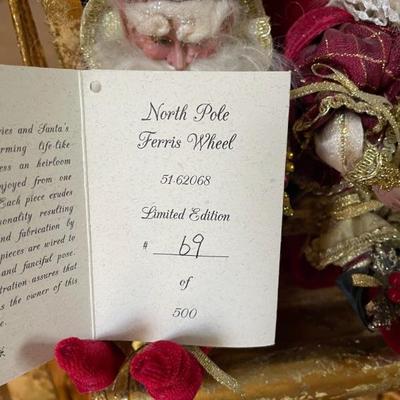 ries and Santa's
rming life-like
ess an heirloom
njoyed from one
Each piece exudes
sonality resulting
and fabrication by
pieces are wired to
and fanciful pose.
tration assures that
s the owner of this
e.
North Pole
Ferris Wheel
51-62068
Limited Edition
# 69
of
500